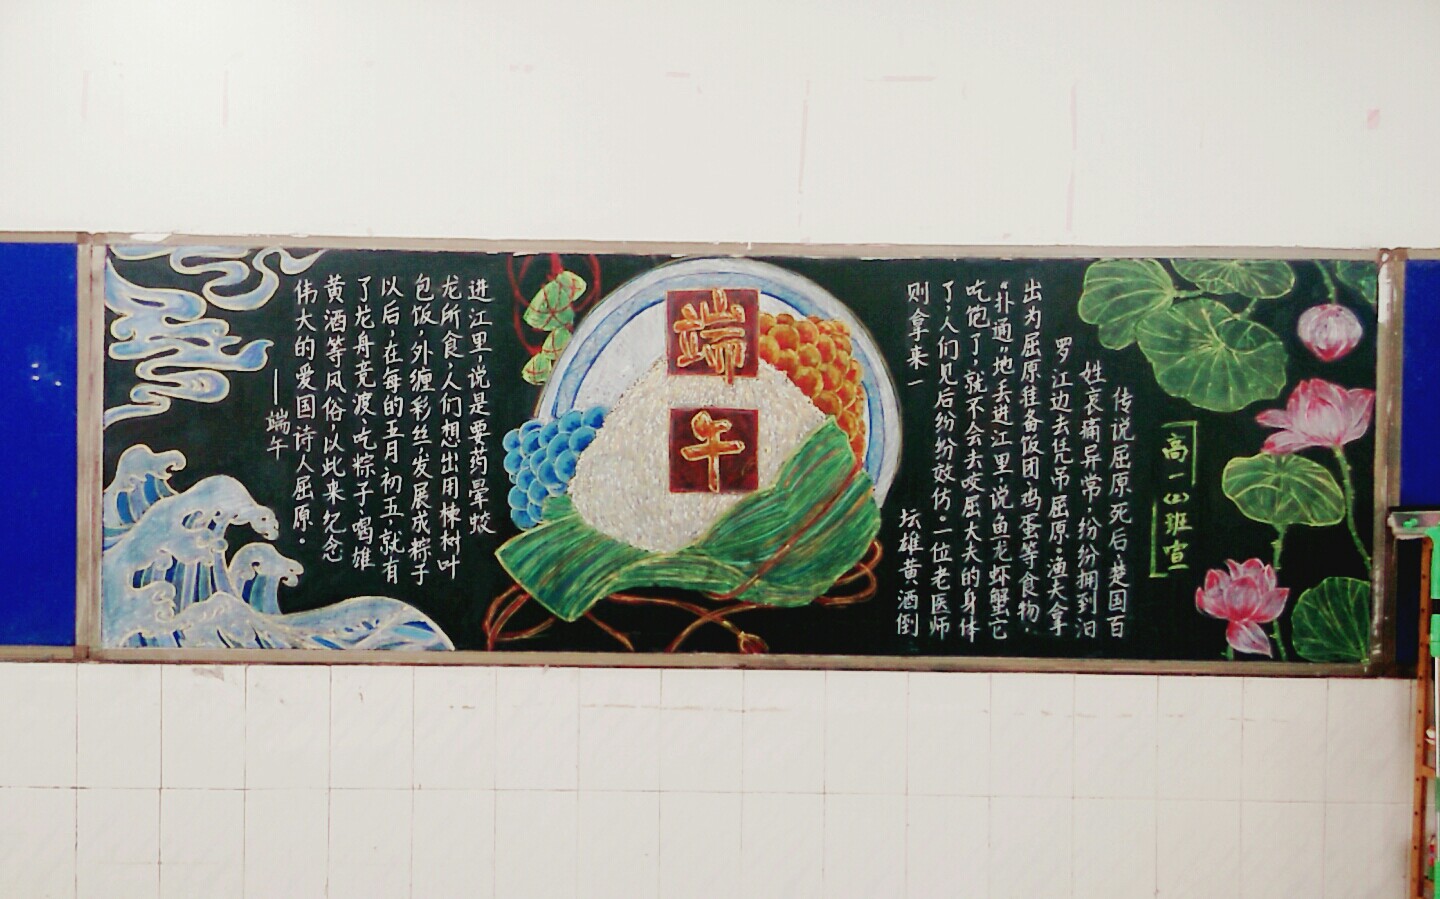 高一
班宣
传说屈原死后,楚国百
姓哀痛异常,纷纷拥到汨
罗江边去凭吊屈原。渔夫拿
出为屈原准备饭团,鸡蛋等食物,
“扑通”地丢进江里,说鱼龙虾蟹它
吃饱了,就不会去咬屈大夫的身体
了,人们见后纷纷效仿。一位老医师
则拿来一坛雄黄酒倒
端午
进江里,说是要药晕蛟
龙所食,人们想出用楝树叶
包饭,外缠彩丝,发展成粽子
以后,在每的五月初五,就有
了龙舟竞渡,吃粽子,喝雄
黄酒等风俗,以此来纪念
伟大的爱国诗人屈原。
——端午